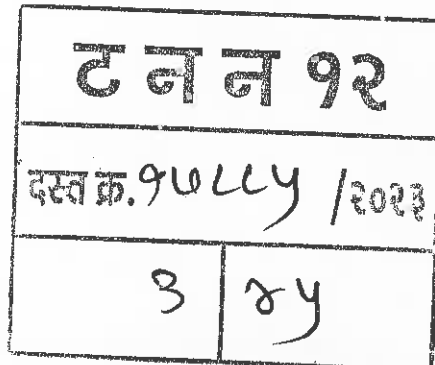 ट न न १२
दस्त क्र. १७८८५ /२०२३
३ ४५